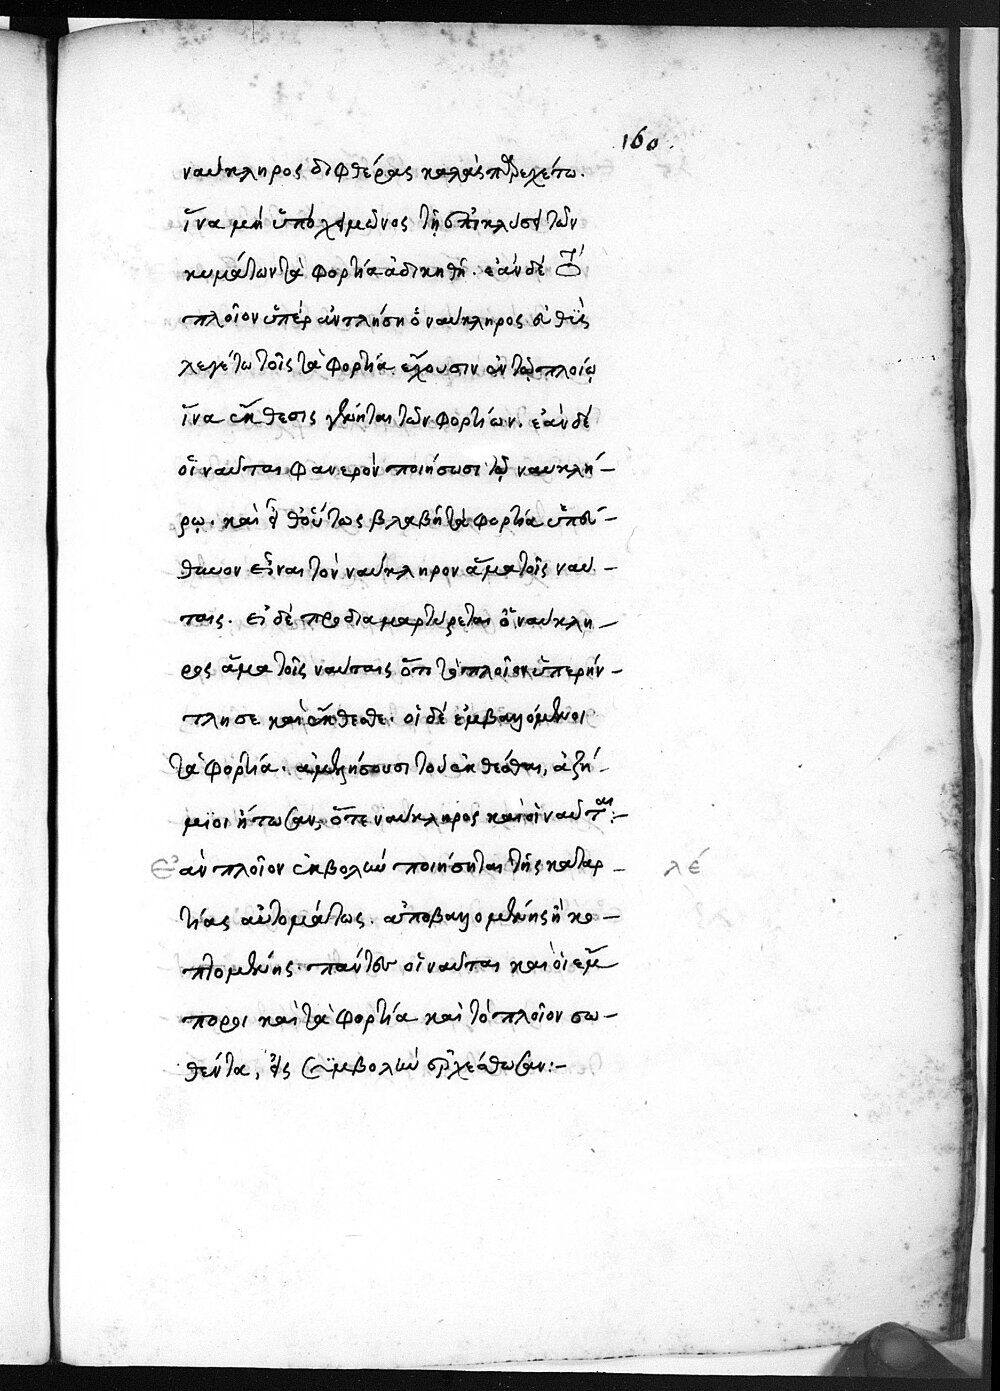 160.
ναύκληρος διφθέρας καλὰς παρεχέτω.
ἵνα μὴ ὑπὸ χειμῶνος τῇ ἐπικλύσει τῶν
κυμάτων τὰ φορτία ἀδικηθῇ. ἐὰν δὲ τὸ
πλοῖον ὑπὲρ ἀντλήσῃ ὁ ναύκληρος εὐθὺς
λεγέτω τοῖς τὰ φορτία ἔχουσιν ἐν τῷ πλοίῳ
ἵνα ἔκθεσις γένηται τῶν φορτίων. ἐὰν δὲ
οἱ ναῦται φανερὸν ποιήσωσι τῷ ναυκλή-
ρῳ. καὶ εἶθ' οὕτως βλαβῇ τὰ φορτία ὑπεύ-
θυνον εἶναι τὸν ναύκληρον ἅμα τοῖς ναύ-
ταις. εἰ δὲ προδιαμαρτύρεται ὁ ναύκλη-
ρος ἅμα τοῖς ναύταις ὅτι τὸ πλοῖον ὑπερήν-
τλησε καὶ ἐκθέσθε. οἱ δὲ ἐμβαλλόμενοι
τὰ φορτία. ἀμελήσουσι τοῦ ἐκθέσθαι, ἀζή-
μιοι ἤτωσαν, ὅτε ναύκληρος καὶ οἱ ναῦται:-
Ἐὰν πλοῖον ἐκβολὴν ποιήσηται τῆς καταρ- λε´
τίας αὐτομάτως. ἀποβαλλομένης ἢ κο-
πτομένης. πάντες οἱ ναῦται καὶ οἱ ἔμ
ποροι καὶ τὰ φορτία καὶ τὸ πλοῖον σω-
θέντα, εἰς συμβολὴν ἐρχέσθωσαν:-